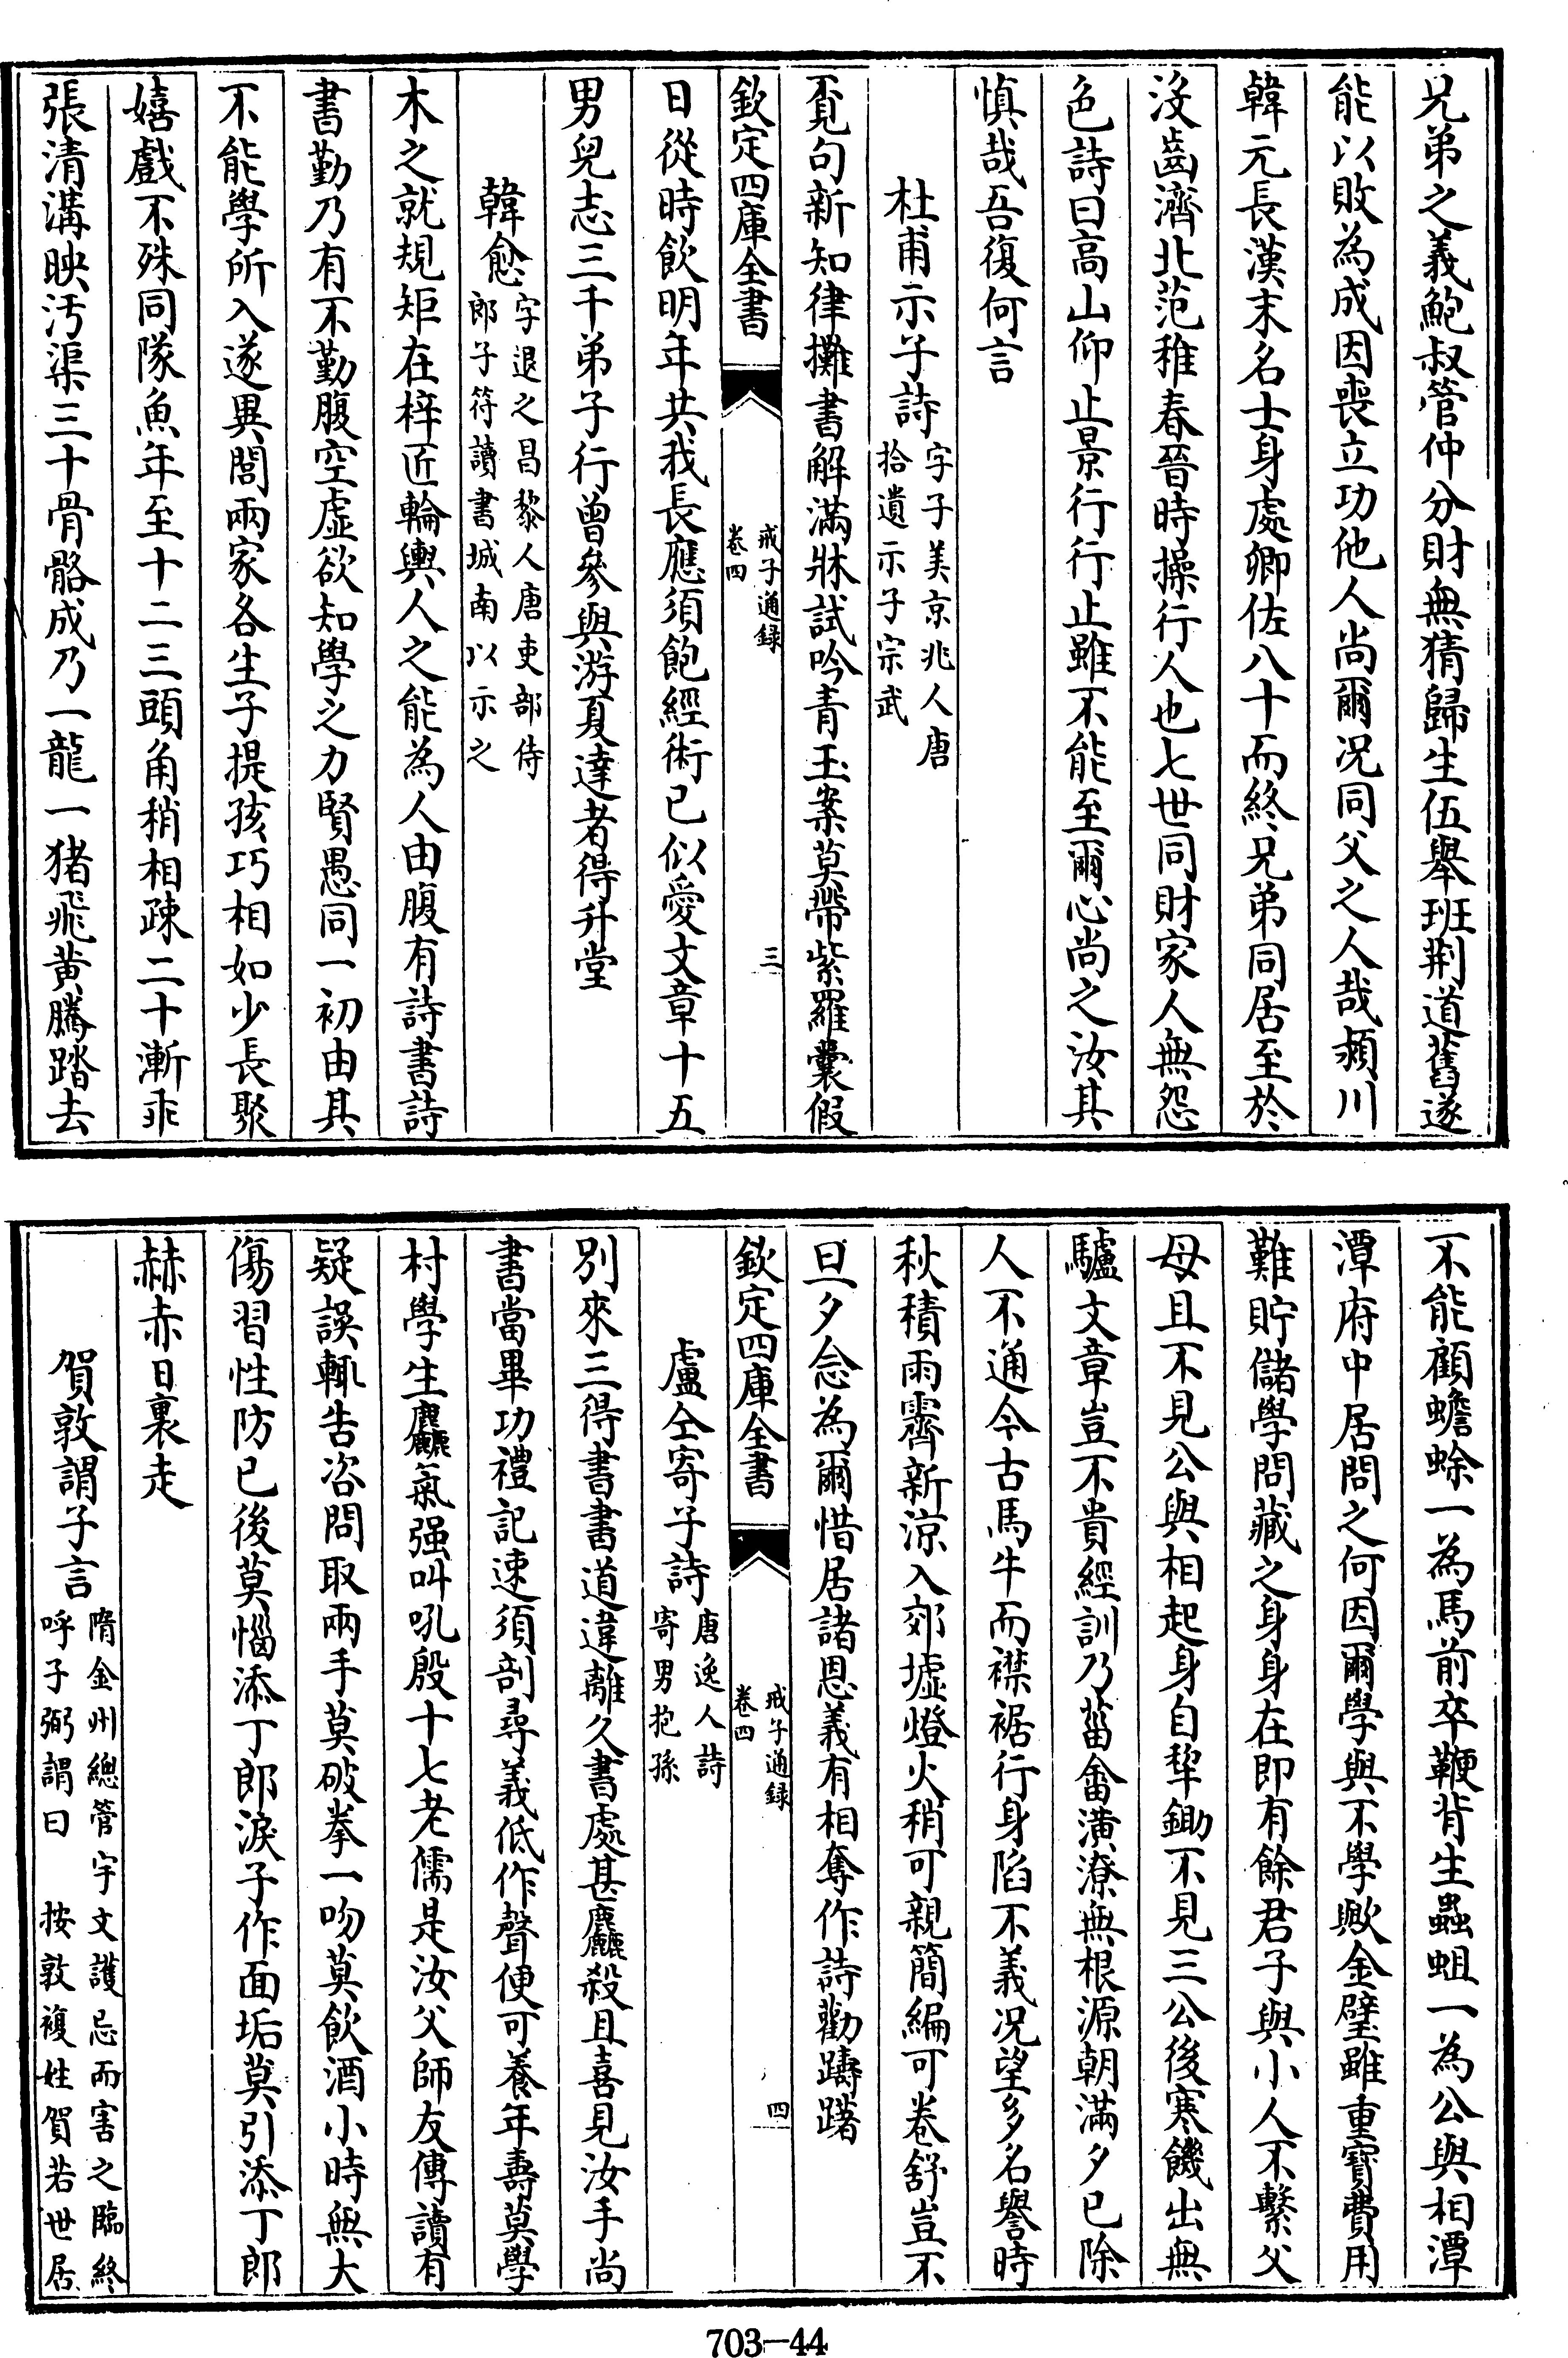 兄弟之義鮑叔管仲分財無猜歸生伍舉班荆道舊遂
能以敗為成因喪立功他人尚爾况同父之人哉潁川
韓元長漢末名士身處卿佐八十而終兄弟同居至於
沒齒濟北范稚春晉時操行人也七世同財家人無怨
色詩曰高山仰止景行行止雖不能至爾心尚之汝其
慎哉吾復何言
杜甫示子詩字子美京兆人唐拾遺示子宗武
覔句新知律攤書解滿牀試吟青玉案莫帶紫羅囊假
欽定四庫全書 戒子通録 卷四 三
日從時飲明年共我長應須飽經術已似愛文章十五
男兒志三千弟子行曾參與游夏達者得升堂
韓愈字退之昌黎人唐吏部侍郎子符讀書城南以示之
木之就規矩在梓匠輪輿人之能為人由腹有詩書詩
書勤乃有不勤腹空虛欲知學之力賢愚同一初由其
不能學所入遂異閭兩家各生子提孩巧相如少長聚
嬉戲不殊同隊魚年至十二三頭角稍相疎二十漸乖
張清溝映汚渠三十骨骼成乃一龍一猪飛黄騰踏去
不能顧蟾蜍一為馬前卒鞭背生蟲蛆一為公與相潭
潭府中居問之何因爾學與不學歟金璧雖重寶費用
難貯儲學問藏之身身在即有餘君子與小人不繫父
母且不見公與相起身自犂鋤不見三公後寒饑出無
驢文章豈不貴經訓乃菑畬潢潦無根源朝滿夕已除
人不通今古馬牛而襟裾行身陷不義况望多名譽時
秋積雨霽新涼入郊墟燈火稍可親簡編可卷舒豈不
旦夕念為爾惜居諸恩義有相奪作詩勸躊躇
欽定四庫全書 戒子通録 卷四 四
盧仝寄子詩唐逸人詩寄男抱孫
別來三得書書道違離久書處甚麤殺且喜見汝手尚
書當畢功禮記速須剖尋義低作聲便可養年壽莫學
村學生麤氣强叫吼殷十七老儒是汝父師友傳讀有
疑誤輒告咨問取兩手莫破拳一吻莫飲酒小時無大
傷習性防已後莫惱添丁郎淚子作面垢莫引添丁郎
赫赤日裏走
賀敦謂子言隋金州總管宇文護忌而害之臨終呼子弼謂曰 按敦複姓賀若世居
703-44